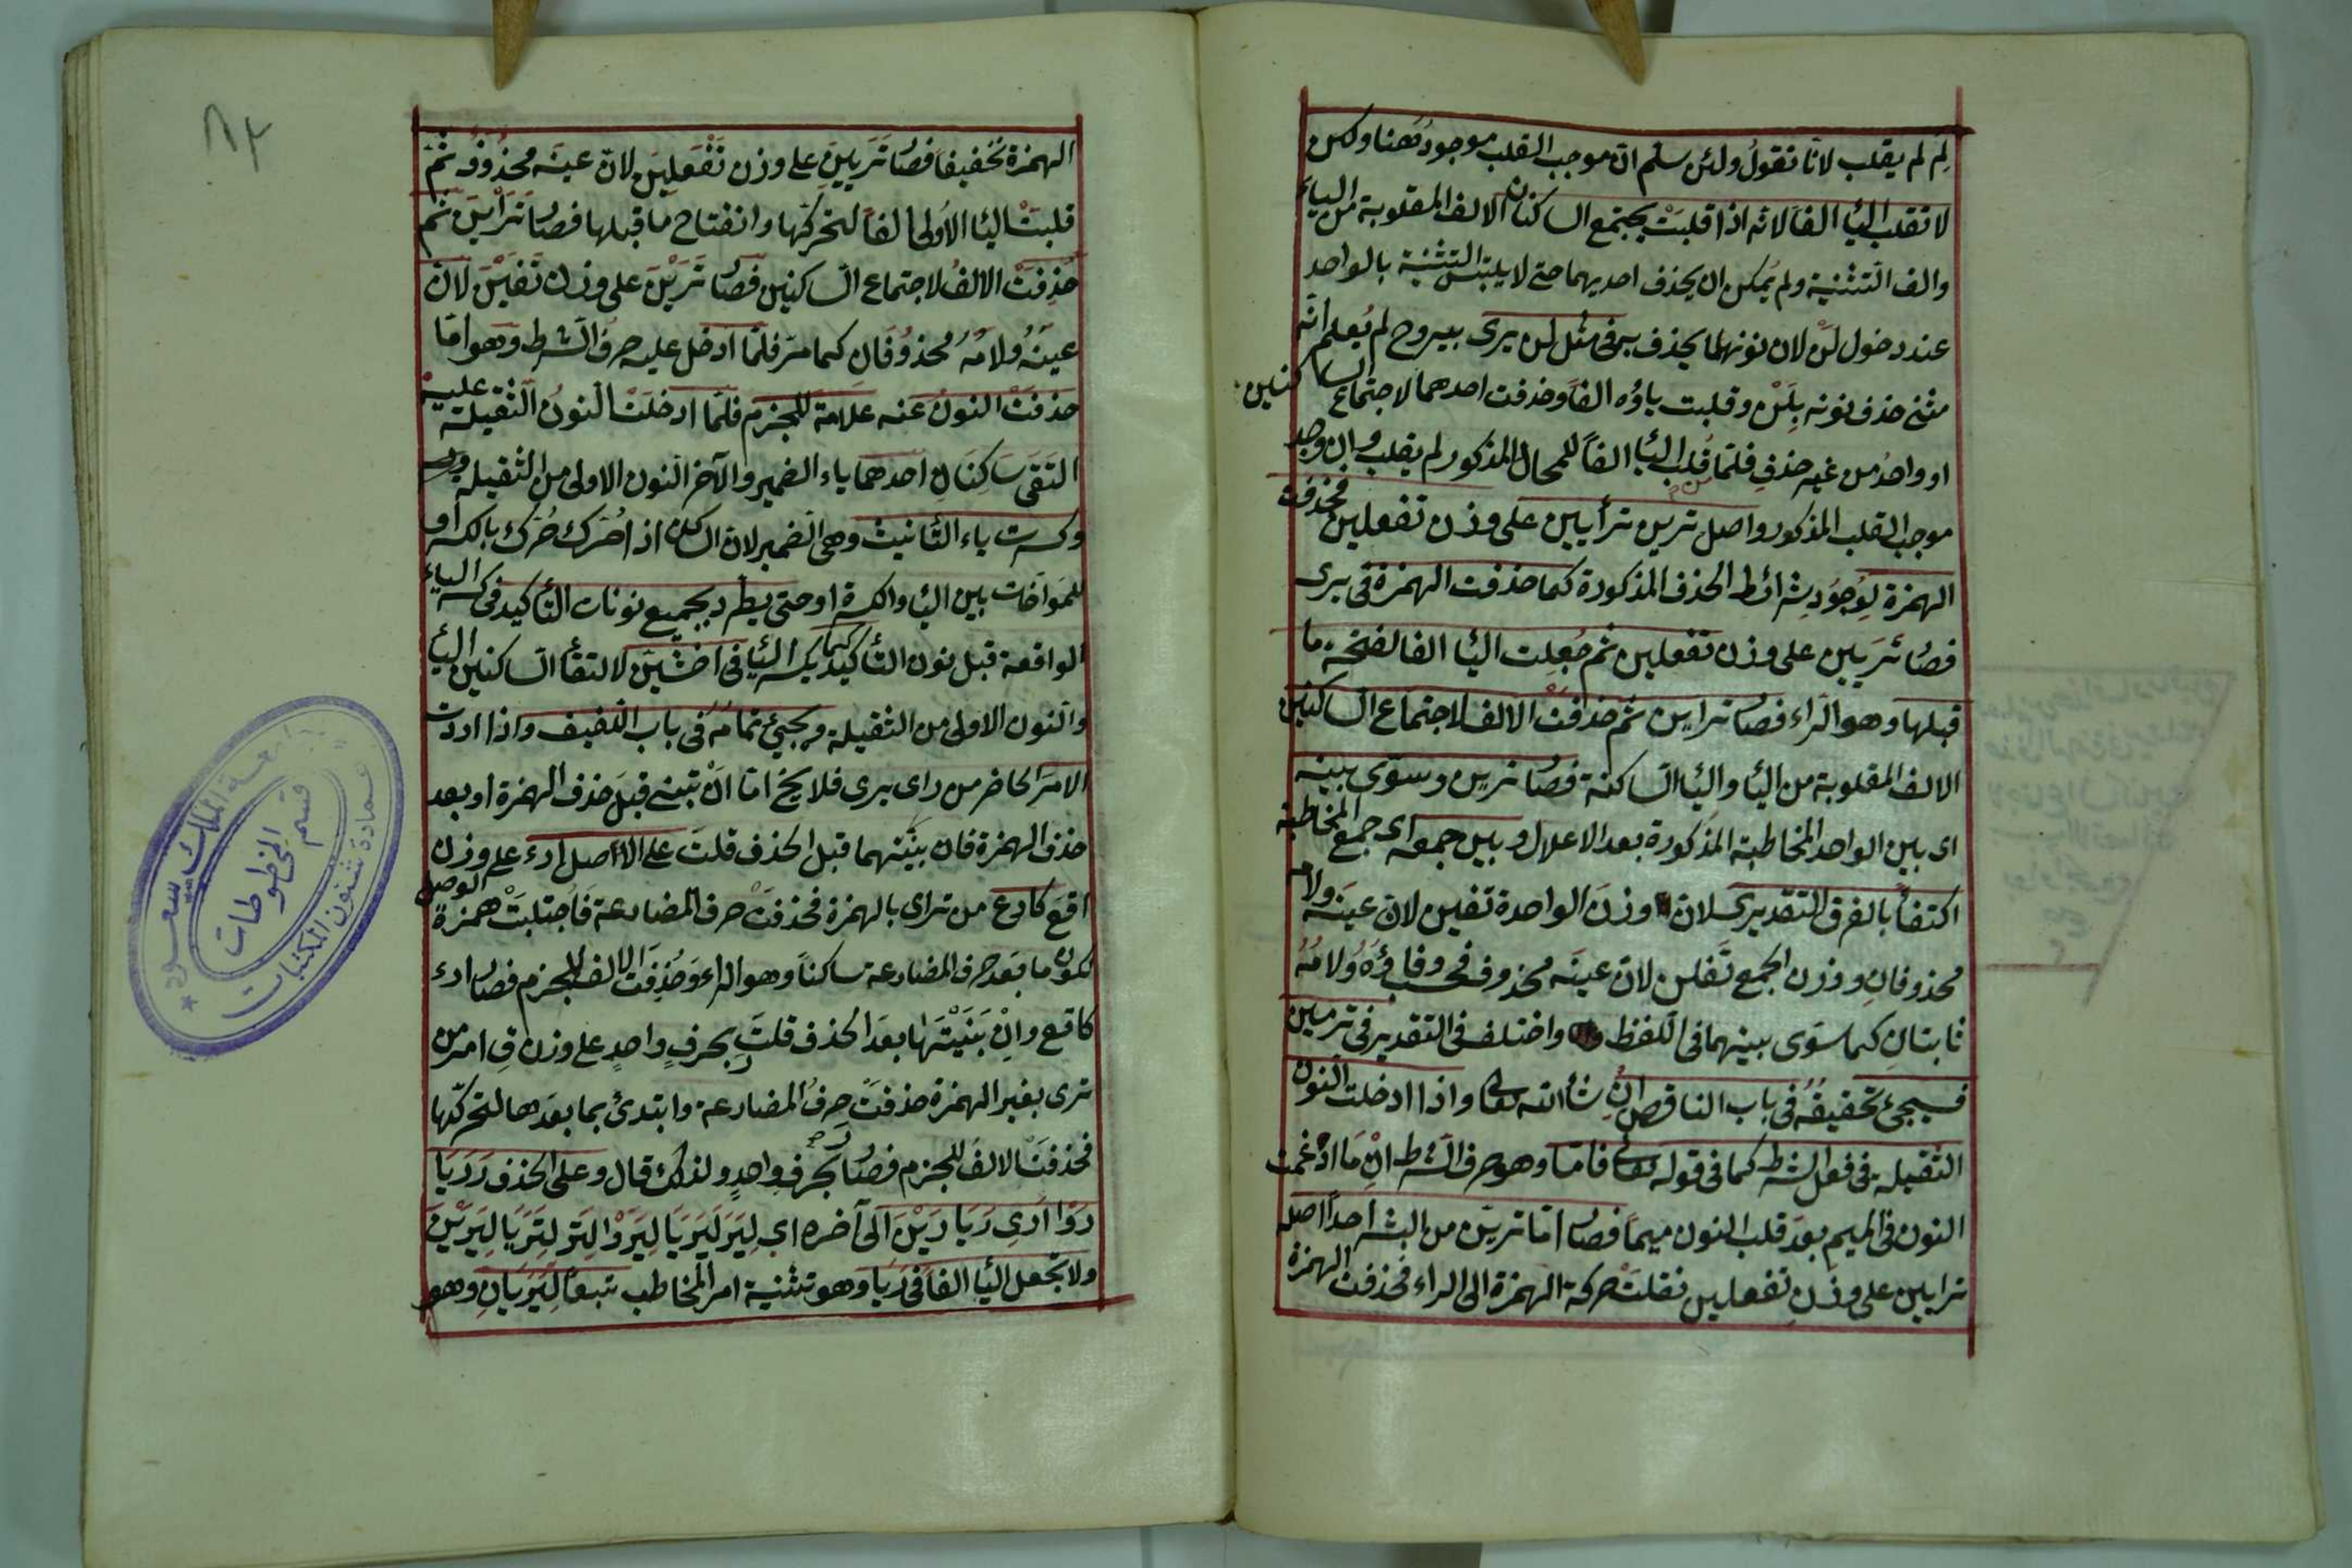 لِمَ لم يقلب لانّا نقولُ ولئن سلم انّ موجب القلب موجود ههنا ولكن
لا تقلب اليا الفاً لانه اذا قلبتْ يجتمع الساكنان الالف المقلوبة من الياء
والف التثنية ولم يمكن ان يحذف احديهما حتى لا يلتبس التثنية بالواحد
عند دخول لَنْ لان نونهما يحذف به فى مثل لن يرى بيروح لم يُعلم انّه
مثنى حذف نونه بِلَنْ وقلبت ياؤه الفاً وحذفت احدهما لاجتماع الساكنين
او واحدُ من غير حذفٍ فلمّا قلب اليا الفاً للمحال المذكور لم يقلب وان وجد
موجب القلب المذكور واصل ترين ترأيين على وزن تفعلين فحذفت
الهمزة لِوجُودِ شرائط الحذف المذكورة كما حذفت الهمزة فى يرى
فصار تَرَيين على وزن تفعلين ثم جُعِلت اليا الفا لفتحة ما
قبلها وهو الراء فصار تراين ثم حذفت الالف لاجتماع الساكنين
الالف المقلوبة من اليا واليا الساكنة فصار ترين وسوّى بينه
اى بين الواحد المخاطبة المذكورة بعد الاعلال وبين جمعه اى جمع المخاطبة
اكتفاً بالفرق التقديرى لان وزن الواحدة تفين لان عينه ولامه
محذوفانِ ووزن الجمع تَفلن لان عينه محذوف فحسب وفاؤهُ ولامُهُ
ثابتانِ كما سوّى بينهما فى اللفظ واختلف فى التقدير فى ترمين
فسيجئ تحقيقُهُ فى باب الناقص ان شا الله تعالى واذا ادخلت النون
الثقيلة فى فعل الشرط كما فى قوله تعالى فامّا وهو حرف الشرط انْ مَا ادغمت
النون فى الميم بعدَ قلب النون ميماً فصار امّا ترينّ من البشر احداً اصله
ترايين على وزنِ تفعلين نقلتْ حركة الهمزة الى الراء فحذفت الهمزة
٨٢
الهمزة تخفيفاً فصار تَرَيِينَ على وزن تَفَعلِينَ لانّ عينَه محذوفُ ثمّ
قلبتْ اليا الاولى الفاً لتحرّكها وانفتاح ما قبلها فصار تَرَايْنَ ثم
حُذِفَتْ الالفُ لاجتماع الساكنين فصار تَرَيْنَ على وزن تَفَيْنَ لانّ
عينَهُ ولامهُ محذوُفَان كما مرّ فلمّا ادخل عليه حرف الشرط وهو امّا
حذفتْ النونُ عنه علامةً للجزم فلمّا ادخلتْ النونُ الثقيلة عليه
التَقَى سَاكِنَانِ احدهما ياء الضمير والآخر النون الاولى من الثقيلة
وكسرت ياء التّانيث وهى الضمير لان الساكن اذا حُرّك حُرّك بالكسر او
للمَواخات بين اليا والكسرة او حتى يطّرد بجميع نونات التأكيد فى كسر الياء
الواقعة قبل نون التأكيد كما يكسر اليا فى اخشَيِنّ لالتقأ الساكنين اليا
والنون الاولى من الثقيلة ويجيئ تمامُهُ فى باب اللفيف واذا اردت
الامرَ الحاضر من راى يرى فلا يخ امّا انْ تبنى قبلَ حذف الهمزة او بعد
حذف الهمزة فان بنيتهما قبل الحذف قلتَ على الاصل ارء على وزن
اقعَ كارع من تراى بالهمزة فحذفتْ حرف المضارعة فَاُجتلبَتْ همزةُ الوصل
لكون ما بعد حرف المضارعة ساكناً وهو الراء وَحُذِفَت الالف للجزم فصار ارء
كاقع وانْ بَنَيْتَها بعدَ الحذف قلتَ رَ بحرفٍ واحدٍ على وزن فِ امر من
ترى بغير الهمزة حذفتَ حرفُ المضارعة وابتدئ بما بعدها لتحركّها
فحذفتْ الالفَ للجزم فصار رَ بحرفٍ واحدٍ ولذلك قال وعلى الحذف رَ رَيَا
رَوْا رَىْ رَيَا رَيْنَ الى آخره اى لِيَرَ لِيَرَيَا لِيَرَوْا لِتَرَ لِتَرَيَا لِيَرَيْنَ
ولا تجعل اليا الفاً فى رَيَا وهو تثنية امر المخاطب تبعاً لِيَرَيَانِ وهو
جامعة الملك سعود
قسم المخطوطات
عمادة شئون المكتبات